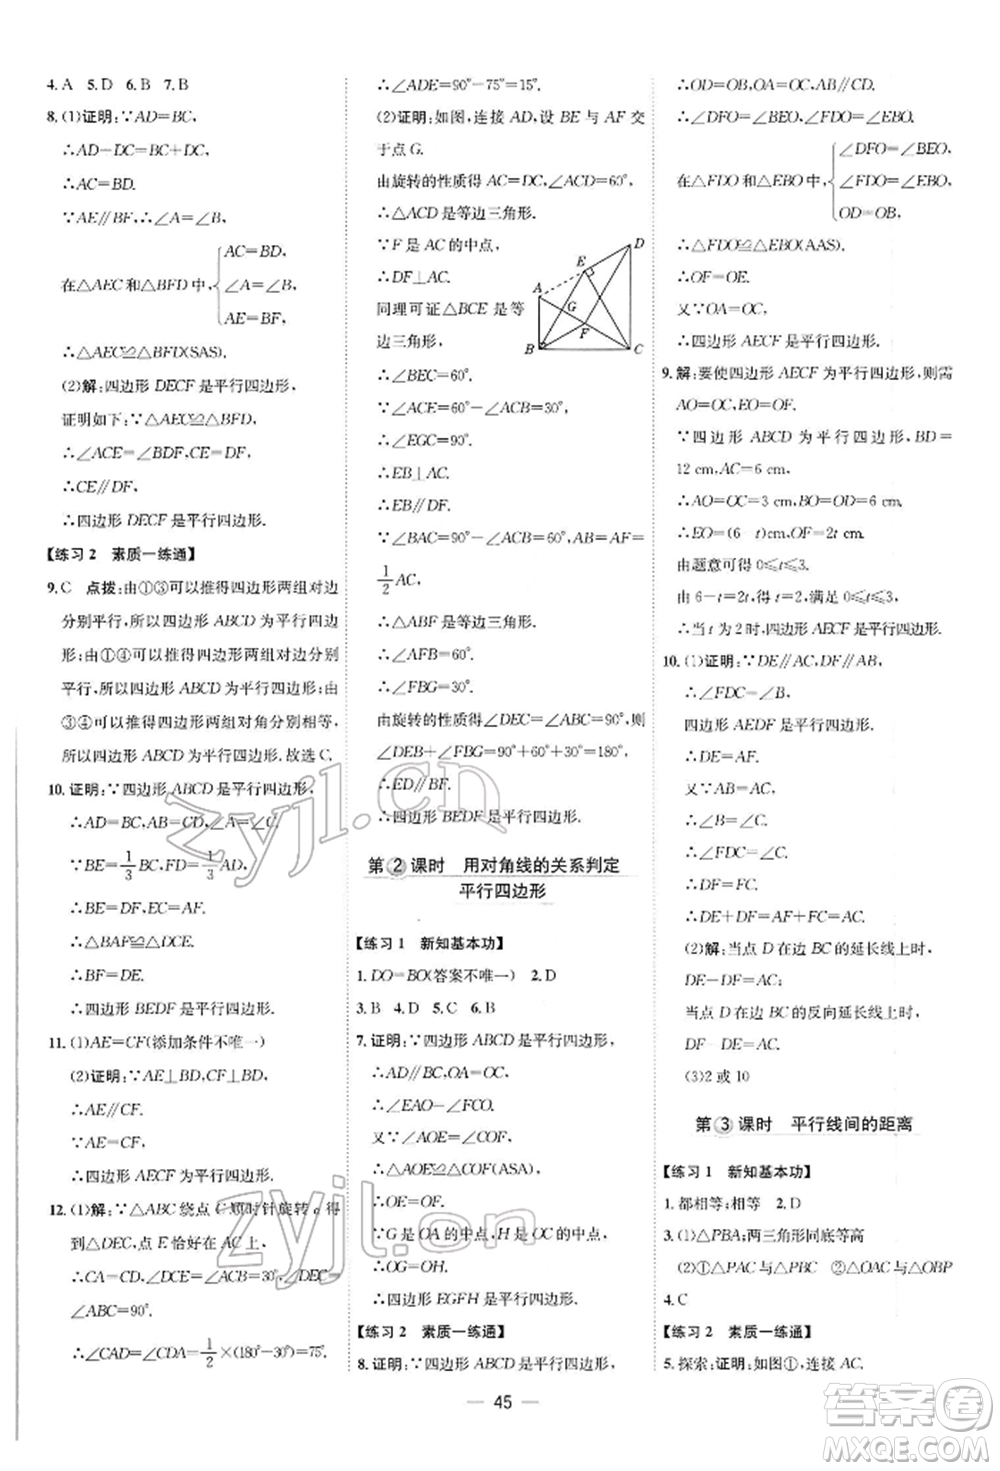 4. A　5. D　6. B　7. B
8. (1)证明:∵AD=BC,
∴AD-DC=BC+DC,
∴AC=BD.
∵AE∥BF,∴∠A=∠B.
在△AEC和△BFD中,{AC=BD, ∠A=∠B, AE=BF,
∴△AEC≌△BFD(SAS).
(2)解:四边形DECF是平行四边形.
证明如下:∵△AEC≌△BFD,
∴∠ACE=∠BDF,CE=DF,
∴CE∥DF,
∴四边形DECF是平行四边形.
【练习2　素质一练通】
9. C　点拨:由①③可以推得四边形两组对边
分别平行,所以四边形ABCD为平行四边
形;由①④可以推得四边形两组对边分别
平行,所以四边形ABCD为平行四边形;由
③④可以推得四边形两组对角分别相等,
所以四边形ABCD为平行四边形.故选C.
10. 证明:∵四边形ABCD是平行四边形,
∴AD=BC,AB=CD,∠A=∠C.
∵BE=1/3BC,FD=1/3AD,
∴BE=DF,∴AF=CE.
∴△BAF≌△DCE.
∴BF=DE.
∴四边形BEDF是平行四边形.
11. (1)AE=CF(添加条件不唯一)
(2)证明:∵AE⊥BD,CF⊥BD,
∴AE∥CF.
∵AE=CF,
∴四边形AECF是平行四边形.
12. (1)解:∵△ABC绕点C顺时针旋转α得
到△DEC,点E恰好在AC上,
∴CA=CD,∠DCE=∠ACB=30°,∠DEC=
∠ABC=90°.
∴∠CAD=∠CDA=1/2×(180°-30°)=75°.
∴∠ADE=90°-75°=15°.
(2)证明:如图,连接AD,设BE与AF交
于点G.
由旋转的性质得AC=DC,∠ACD=60°,
∴△ACD是等边三角形.
∵F是AC的中点,
∴DF⊥AC.
同理可证△BCE是等
边三角形,
∴∠BEC=60°.
∴∠AEG=60°-∠BAC=30°,
∴∠EGC=90°.
∴EB⊥AC,
∴EB∥DF.
∵∠ABC=90°,F是AC的中点,∴BF=AF=
1/2AC,
∴△ABF是等边三角形.
∴∠AFB=60°.
∴∠FBG=30°.
由旋转的性质得∠DEC=∠ABC=90°,则
∠DEB+∠FBG=90°+60°+30°=180°,
∴ED∥BF.
∴四边形BEDF是平行四边形.
A
B
C
D
E
F
G
第②课时　用对角线的关系判定
平行四边形
【练习1　新知基本功】
1. DO=BO(答案不唯一)　2. D
3. B　4. D　5. C　6. B
7. 证明:∵四边形ABCD是平行四边形,
∴AD∥BC,OA=OC.
∴∠EAO=∠FCO.
又∵∠AOE=∠COF,
∴△AOE≌△COF(ASA).
∴OE=OF.
∵G是OA的中点,H是OC的中点,
∴OG=OH.
∴四边形EGFH是平行四边形.
【练习2　素质一练通】
8. 证明:∵四边形ABCD是平行四边形,
∴OD=OB,OA=OC,AB∥CD.
∴∠DFO=∠BEO,∠FDO=∠EBO.
在△FDO和△EBO中,{∠DFO=∠BEO, ∠FDO=∠EBO, OD=OB,
∴△FDO≌△EBO(AAS).
∴OF=OE.
又∵OA=OC,
∴四边形AECF是平行四边形.
9. 解:要使四边形AECF为平行四边形,则需
AO=OC,EO=OF.
∵四边形ABCD为平行四边形,BD=
12 cm,AC=6 cm,
∴AO=OC=3 cm,BO=OD=6 cm.
∴EO=(6-t)cm,OF=2t cm.
由题意可得0≤t≤3.
由6-t=2t,得t=2,满足0≤t≤3.
∴当t为2时,四边形AECF是平行四边形.
10. (1)证明:∵DE∥AC,DF∥AB,
∴∠FDC=∠B,
四边形AEDF是平行四边形.
∴DE=AF.
又∵AB=AC,
∴∠B=∠C.
∴∠FDC=∠C.
∴DF=FC.
∴DE+DF=AF+FC=AC.
(2)解:当点D在边BC的延长线上时,
DE-DF=AC;
当点D在边BC的反向延长线上时,
DF-DE=AC.
(3)2或10
第③课时　平行线间的距离
【练习1　新知基本功】
1. 都相等;相等　2. D
3. (1)△PBA;两三角形同底等高
(2)①△PAC与△PBC　②△OAC与△OBP
4. C
【练习2　素质一练通】
5. 探索:证明:如图①,连接AC.
— 45 —
zyjl.cn
zyjl.cn
答案圈
MXQE.COM